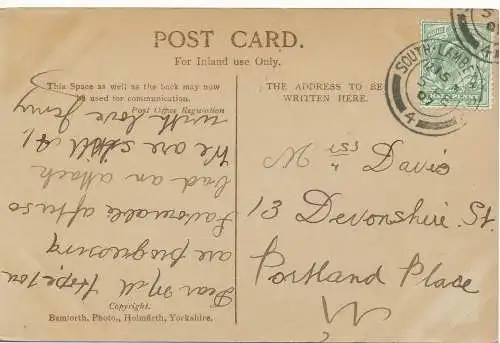 POST CARD.
For Inland use Only.
This Space as well as the back may now
be used for communication.
Post Office Regulation
THE ADDRESS TO BE
WRITTEN HERE.
SOUTH-LAMBE
07
4
Miss Davis
13 Devonshire St.
Portland Place
W
Dear M Hope you
are progressing
favourable after so
bad an attack
We are still A1
with love Jenny
Copyright.
Bamforth, Photo., Holmfirth, Yorkshire.